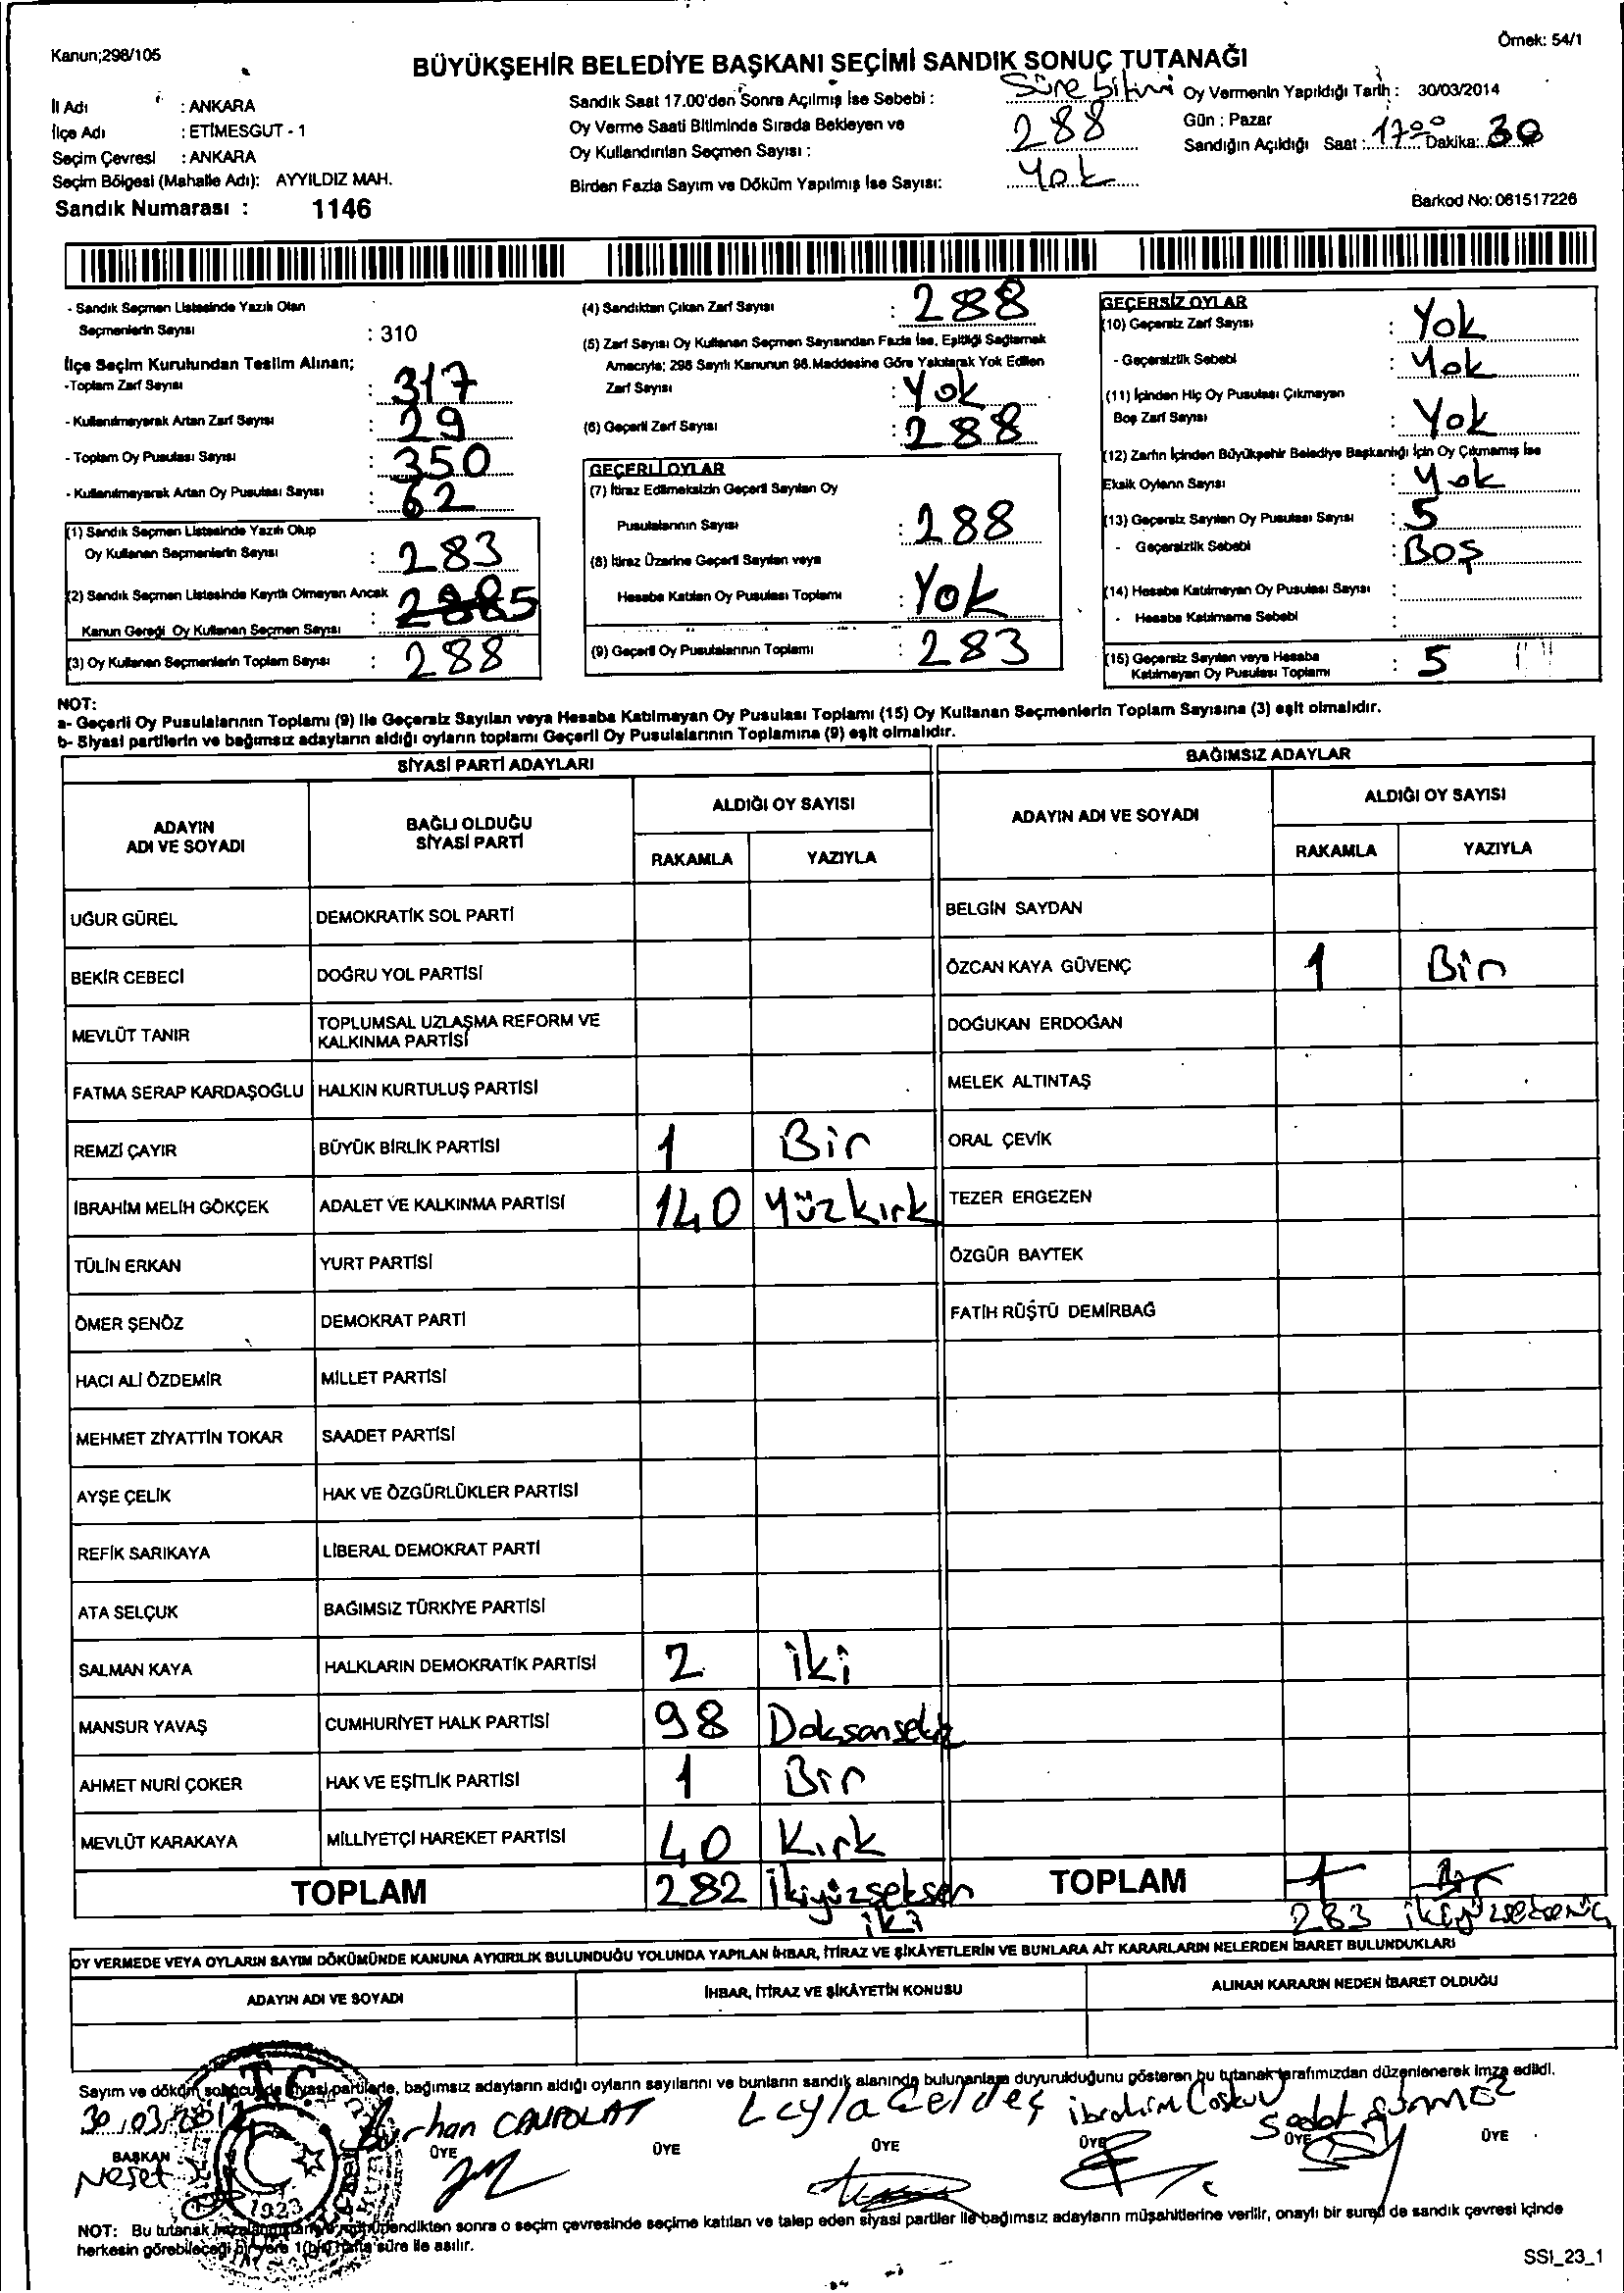 Kanun;298/105
Örnek: 54/1
BÜYÜKŞEHİR BELEDİYE BAŞKANI SEÇİMİ SANDIK SONUÇ TUTANAĞI
İl Adı : ANKARA
İlçe Adı : ETİMESGUT - 1
Seçim Çevresi : ANKARA
Seçim Bölgesi (Mahalle Adı): AYYILDIZ MAH.
Sandık Numarası : 1146
Sandık Saat 17.00'den Sonra Açılmış İse Sebebi : Süre bitimi
Oy Verme Saati Bitiminde Sırada Bekleyen ve
Oy Kullandırılan Seçmen Sayısı : 288
Birden Fazla Sayım ve Döküm Yapılmış İse Sayısı: Yok
Oy Vermenin Yapıldığı Tarih : 30/03/2014
Gün : Pazar
Sandığın Açıldığı Saat : 17⁰⁰ Dakika: 30
Barkod No: 061517226
- Sandık Seçmen Listesinde Yazılı Olan
Seçmenlerin Sayısı : 310
İlçe Seçim Kurulundan Teslim Alınan;
-Toplam Zarf Sayısı : 317
- Kullanılmayarak Artan Zarf Sayısı : 29
- Toplam Oy Pusulası Sayısı : 350
- Kullanılmayarak Artan Oy Pusulası Sayısı : 62
(1) Sandık Seçmen Listesinde Yazılı Olup
Oy Kullanan Seçmenlerin Sayısı : 283
(2) Sandık Seçmen Listesinde Kayıtlı Olmayan Ancak
Kanun Gereği Oy Kullanan Seçmen Sayısı : 5
(3) Oy Kullanan Seçmenlerin Toplam Sayısı : 288
(4) Sandıktan Çıkan Zarf Sayısı : 288
(5) Zarf Sayısı Oy Kullanan Seçmen Sayısından Fazla İse, Eşitliği Sağlamak
Amacıyla; 298 Sayılı Kanunun 98.Maddesine Göre Yakılarak Yok Edilen
Zarf Sayısı : Yok
(6) Geçerli Zarf Sayısı : 288
GEÇERLİ OYLAR
(7) İtiraz Edilmeksizin Geçerli Sayılan Oy
Pusulalarının Sayısı : 288
(8) İtiraz Üzerine Geçerli Sayılan veya
Hesaba Katılan Oy Pusulası Toplamı : Yok
(9) Geçerli Oy Pusulalarının Toplamı : 283
GEÇERSİZ OYLAR
(10) Geçersiz Zarf Sayısı : Yok
- Geçersizlik Sebebi : Yok
(11) İçinden Hiç Oy Pusulası Çıkmayan
Boş Zarf Sayısı : Yok
(12) Zarfın İçinden Büyükşehir Belediye Başkanlığı İçin Oy Çıkmamış İse
Eksik Oyların Sayısı : Yok
(13) Geçersiz Sayılan Oy Pusulası Sayısı : 5
- Geçersizlik Sebebi : Boş
(14) Hesaba Katılmayan Oy Pusulası Sayısı :
- Hesaba Katılmama Sebebi :
(15) Geçersiz Sayılan veya Hesaba
Katılmayan Oy Pusulası Toplamı : 5
NOT:
a- Geçerli Oy Pusulalarının Toplamı (9) ile Geçersiz Sayılan veya Hesaba Katılmayan Oy Pusulası Toplamı (15) Oy Kullanan Seçmenlerin Toplam Sayısına (3) eşit olmalıdır.
b- Siyasi partilerin ve bağımsız adayların aldığı oyların toplamı Geçerli Oy Pusulalarının Toplamına (9) eşit olmalıdır.
SİYASİ PARTİ ADAYLARI
BAĞIMSIZ ADAYLAR
ADAYIN ADI VE SOYADI
BAĞLI OLDUĞU SİYASİ PARTİ
ALDIĞI OY SAYISI
RAKAMLA YAZIYLA
ADAYIN ADI VE SOYADI
ALDIĞI OY SAYISI
RAKAMLA YAZIYLA
UĞUR GÜREL DEMOKRATİK SOL PARTİ
BELGİN SAYDAN
BEKİR CEBECİ DOĞRU YOL PARTİSİ
ÖZCAN KAYA GÜVENÇ 1 Bir
MEVLÜT TANIR TOPLUMSAL UZLAŞMA REFORM VE KALKINMA PARTİSİ
DOĞUKAN ERDOĞAN
FATMA SERAP KARDAŞOĞLU HALKIN KURTULUŞ PARTİSİ
MELEK ALTINTAŞ
REMZİ ÇAYIR BÜYÜK BİRLİK PARTİSİ 1 Bir
ORAL ÇEVİK
İBRAHİM MELİH GÖKÇEK ADALET VE KALKINMA PARTİSİ 140 Yüzkırk
TEZER ERGEZEN
TÜLİN ERKAN YURT PARTİSİ
ÖZGÜR BAYTEK
ÖMER ŞENÖZ DEMOKRAT PARTİ
FATİH RÜŞTÜ DEMİRBAĞ
HACI ALİ ÖZDEMİR MİLLET PARTİSİ
MEHMET ZİYATTİN TOKAR SAADET PARTİSİ
AYŞE ÇELİK HAK VE ÖZGÜRLÜKLER PARTİSİ
REFİK SARIKAYA LİBERAL DEMOKRAT PARTİ
ATA SELÇUK BAĞIMSIZ TÜRKİYE PARTİSİ
SALMAN KAYA HALKLARIN DEMOKRATİK PARTİSİ 2 iki
MANSUR YAVAŞ CUMHURİYET HALK PARTİSİ 98 Doksansekiz
AHMET NURİ ÇOKER HAK VE EŞİTLİK PARTİSİ 1 Bir
MEVLÜT KARAKAYA MİLLİYETÇİ HAREKET PARTİSİ 40 Kırk
TOPLAM 282 İkiyüzseksen iki
TOPLAM 1 Bir
283 ikiyüzseksenüç
OY VERMEDE VEYA OYLARIN SAYIM DÖKÜMÜNDE KANUNA AYKIRILIK BULUNDUĞU YOLUNDA YAPILAN İHBAR, İTİRAZ VE ŞİKÂYETLERİN VE BUNLARA AİT KARARLARIN NELERDEN İBARET BULUNDUKLARI
ADAYIN ADI VE SOYADI
İHBAR, İTİRAZ VE ŞİKÂYETİN KONUSU
ALINAN KARARIN NEDEN İBARET OLDUĞU
T.C.
Sayım ve döküm sonucunda siyasi partilerle, bağımsız adayların aldığı oyların sayılarını ve bunların sandık alanında bulunanlara duyurulduğunu gösteren bu tutanak tarafımızdan düzenlenerek imza edildi.
30.03.
Burhan CANPOLAT
Leyla Geldeç
ibrahim Coşkun
Sedat
BAŞKAN ÜYE ÜYE ÜYE ÜYE ÜYE ÜYE
Neşet
1923
NOT: Bu tutanak sonra o seçim çevresinde seçime katılan ve talep eden siyasi partiler ile bağımsız adayların müşahitlerine verilir, onaylı bir sureti de sandık çevresi içinde
herkesin görebileceği bir yere 1(bir) hafta süre ile asılır.
SSI_23_1